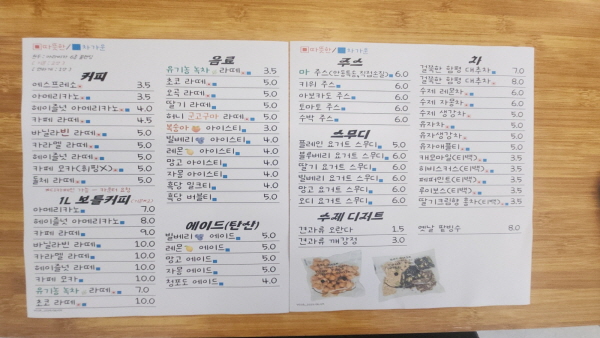 따뜻한/차가운
커피
에스프레소 3.5
아메리카노 3.5
헤이즐넛 아메리카노 4.0
카페 라떼 4.5
바닐라빈 라떼 5.0
카라멜 라떼 5.0
헤이즐넛 라떼 5.0
카페 모카(휘핑X) 5.0
돌체 라떼 5.0
1L 보틀커피
아메리카노 7.0
헤이즐넛 아메리카노 8.0
카페 라떼 9.0
바닐라빈 라떼 10.0
카라멜 라떼 10.0
헤이즐넛 라떼 10.0
카페 모카 10.0
유기농 녹차 라떼 7.0
초코 라떼 10.0
음료
유기농 녹차 라떼 3.5
초코 라떼 5.0
오곡 라떼 5.0
딸기 라떼 5.0
허니 군고구마 라떼 5.0
복숭아 아이스티 3.0
빌베리 아이스티 4.0
레몬 아이스티 4.0
망고 아이스티 4.0
자몽 아이스티 4.0
흑당 밀크티 4.0
흑당 버블티 5.0
에이드(탄산)
빌베리 에이드 5.0
레몬 에이드 5.0
망고 에이드 5.0
자몽 에이드 5.0
청포도 에이드 4.0
따뜻한/차가운
주스
마 주스(안동특품,직접손질) 6.0
키위 주스 6.0
아보카도 주스 6.0
토마토 주스 6.0
수박 주스 6.0
스무디
플레인 요거트 스무디 5.0
블루베리 요거트 스무디 6.0
딸기 요거트 스무디 6.0
빌베리 요거트 스무디 6.0
망고 요거트 스무디 6.0
오디 요거트 스무디 6.0
수제 디저트
견과류 오란다 1.5
견과류 깨강정 3.0
차
걸쭉한 한평 대추차 7.0
걸쭉한 한평 대추차 8.0
수제 레몬차 6.0
수제 자몽차 6.0
수제 생강차 5.0
유자차 5.0
유자생강차 5.0
유자애플티 5.0
캐모마일(티백) 3.5
히비스커스(티백) 3.5
페퍼민트(티백) 3.5
루이보스(티백) 3.5
딸기크림향 홍차(티백) 3.5
옛날 팥빙수 8.0